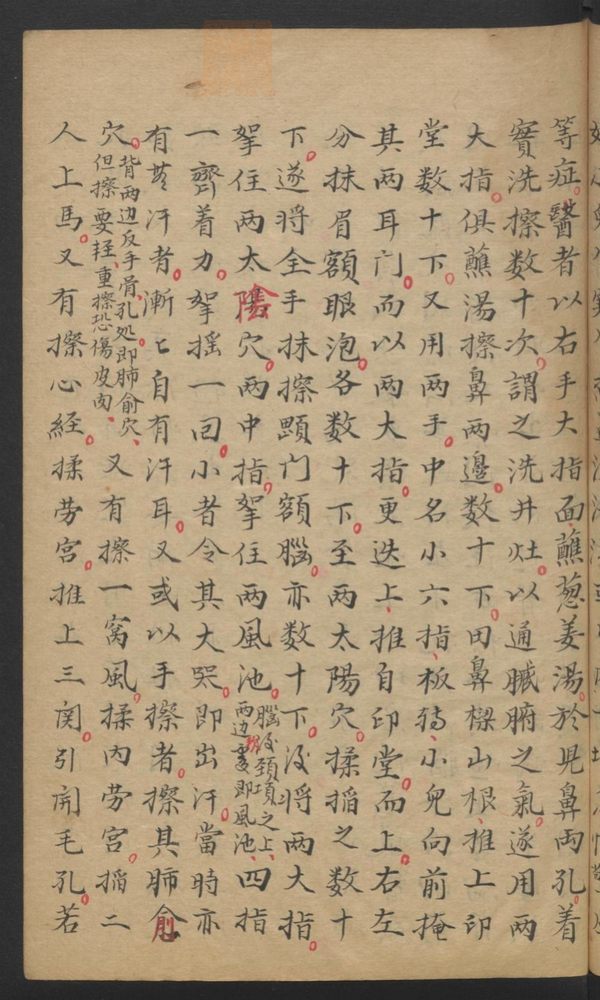 等症。醫者以右手大指面、蘸葱姜湯。於児鼻両孔。着
實洗擦数十次。謂之洗井灶。以通臓腑之氣。遂用两
大指。俱蘸湯擦鼻两邊。数十下。田鼻樑山根、推上印
堂数十下。又用两手。中名小六指、板㧞、小兒向前掩
其两耳门。而以两大指。更迭上、推自印堂。而上。右左
分抹眉額眼泡。各数十下。至两太陽穴。揉搯之数十
下。遂将全手抹擦顖门額腦。亦数十下。後将两大指。
拏住两太陽穴。两中指。拏住两風池。腦後頸項之上、两边窝即風池、四指
一齊着力。拏摇一回。小者令其大哭。即出汗。當時亦
有無汗者。漸〻自有汗耳。又或以手擦者。擦其肺俞
穴。背两边反手骨、孔处即肺俞穴、但擦要軽、重擦恐傷皮肉、又有擦一窩風。揉内劳宫。搯二
人上馬。又有擦心経。揉劳宫。推上三関。引開毛孔。若